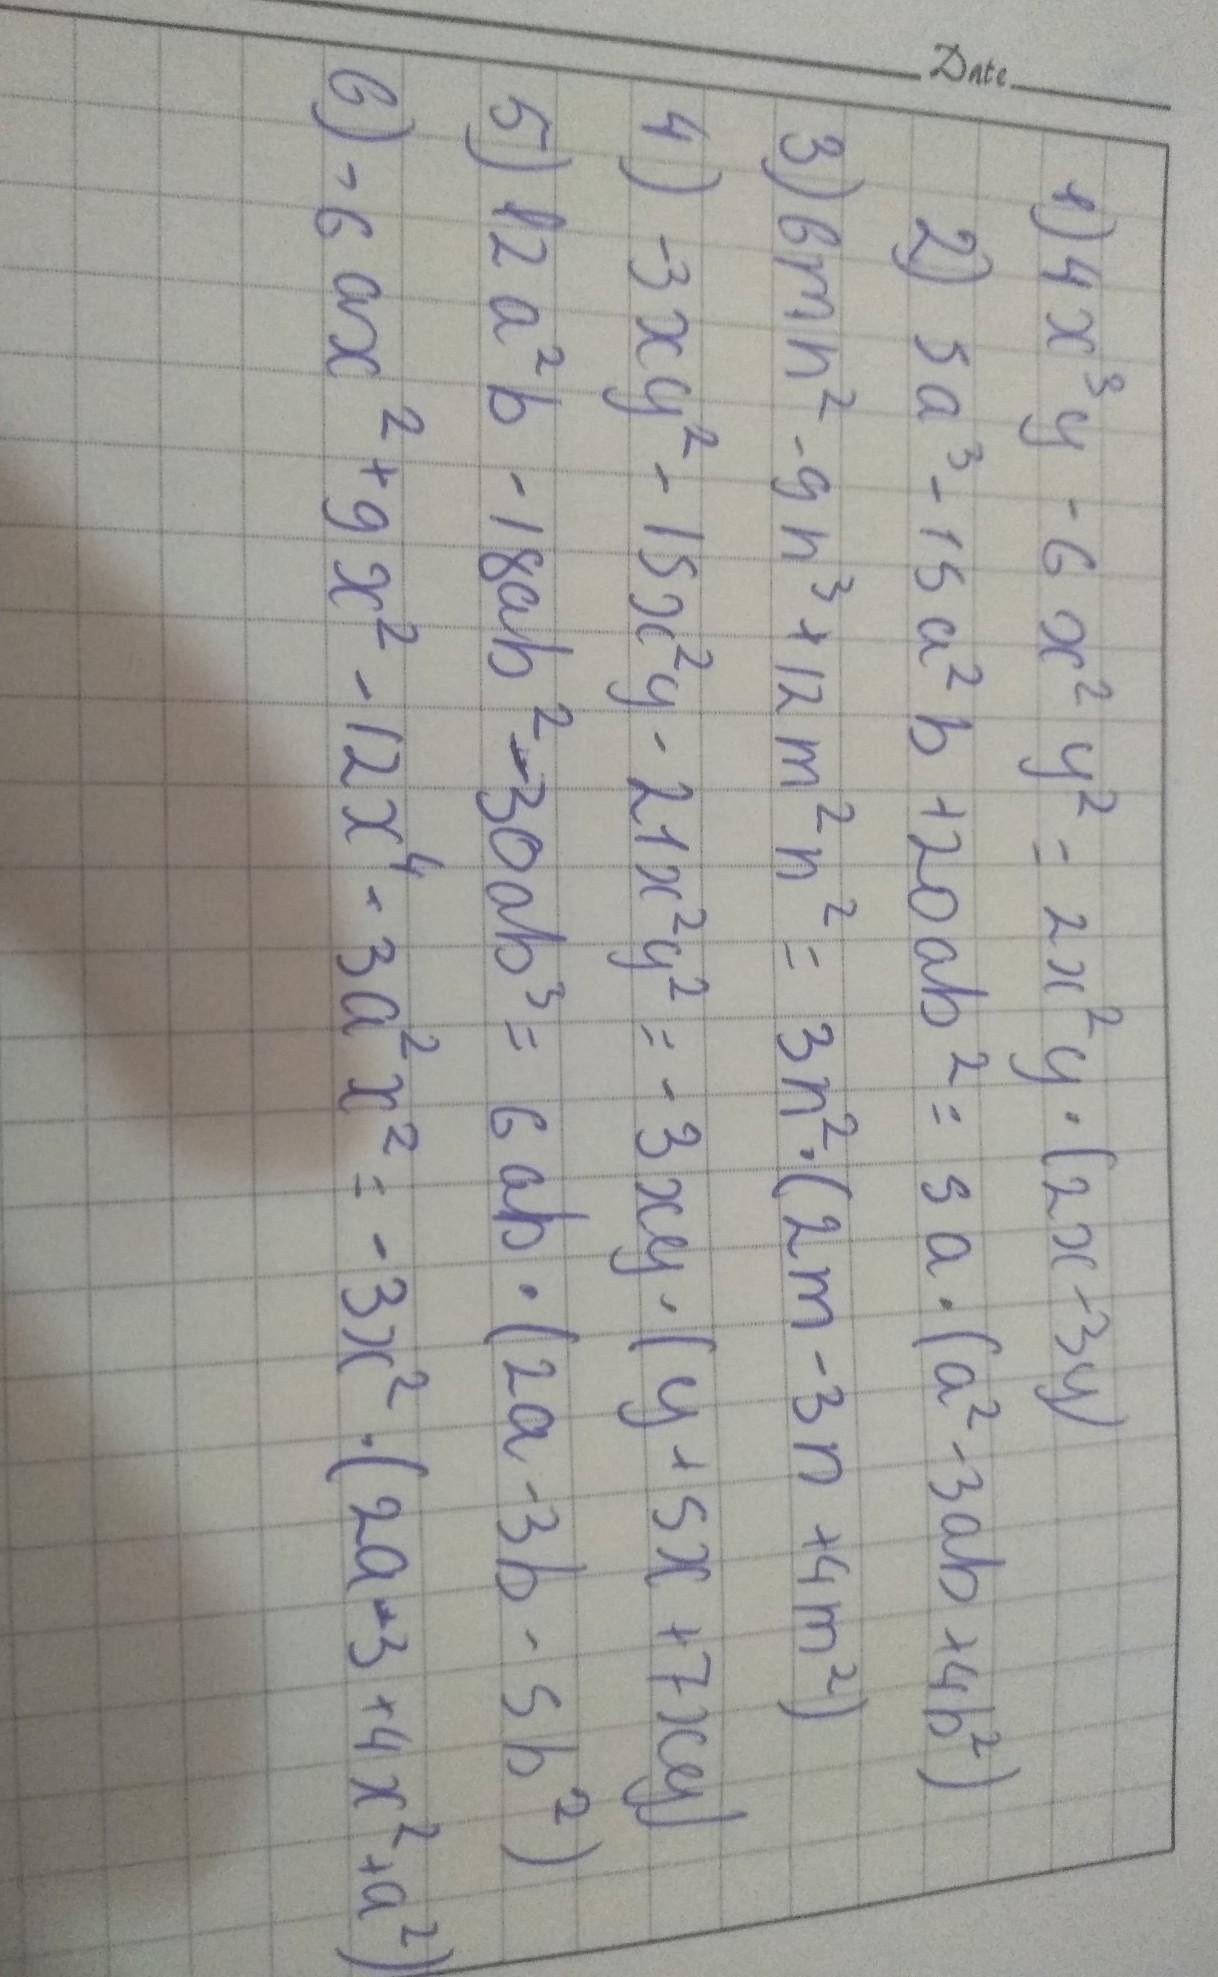 Date
1) 4x³y - 6x²y² = 2x²y · (2x - 3y)
2) 5a³ - 15a²b + 20ab² = 5a · (a² - 3ab + 4b²)
3) 6mn² - 9n³ + 12m²n² = 3n² · (2m - 3n + 4m²)
4) -3xy² - 15x²y - 21x²y² = -3xy · (y + 5x + 7xy)
5) 12a²b - 18ab² - 30ab³ = 6ab · (2a - 3b - 5b²)
6) -6ax² + 9x² - 12x⁴ - 3a²x² = -3x² · (2a - 3 + 4x² + a²)